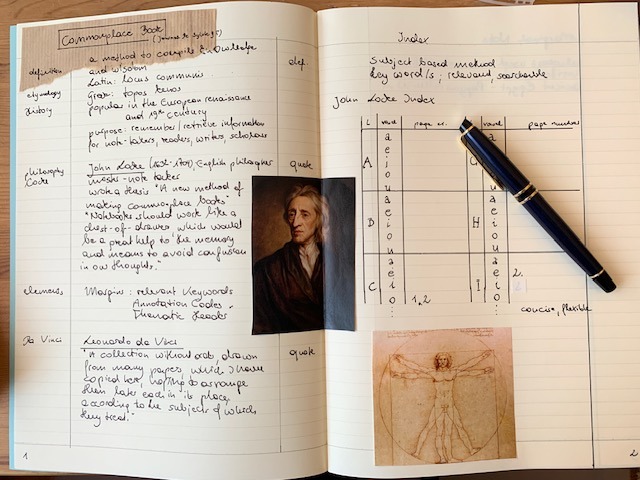 Commonplace Book
a method to compile knowledge
definition
and wisdom
def.
etymology
Latin: locus communis
Greek: topos
History
popular in the European renaissance
and 19th century
purpose: remember/retrieve information
for note-takers, readers, writers, scholars
philosophy
John Locke (1632-1704), English philosopher
quote
Locke
master-note taker
wrote a thesis "A new method of
making commonplace books"
"Notebooks should work like a
chest-of-drawers which would
be a great help to the memory
and means to avoid confusion
in our thoughts."
elements
Margins: relevant Keywords
Annotation Codes
Thematic Header
Da Vinci
Leonardo da Vinci
"A collection without order, drawn
quote
from many papers, which I have
copied here, hoping to arrange
them later each in its place,
according to the subjects of which
they treat."
1
Index
Subject based method
Key word/s; relevant, searchable
John Locke Index
L vowel page nr. L vowel page numbers
a a
e
A i
o
u
a a
e e
B i H i
o o
u u
a a
e e 2.
C i I i
o 1,2 o
concise, flexible
2